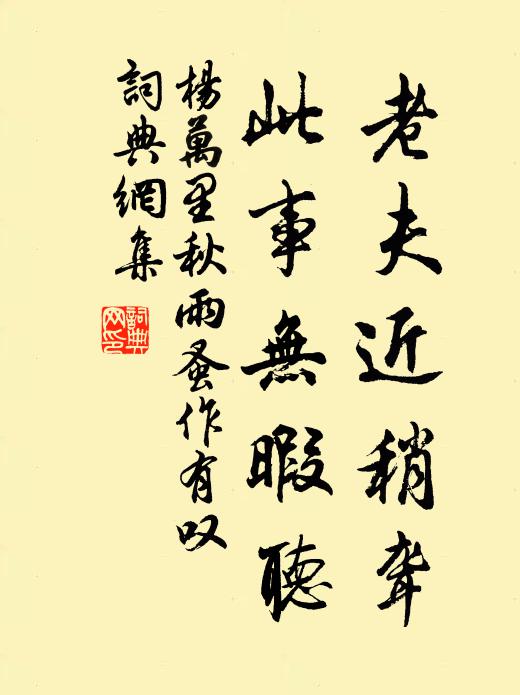 老夫近稍聋
此事無暇聽
楊萬里秋雨蚤作有叹
詞典網集
詞典网印